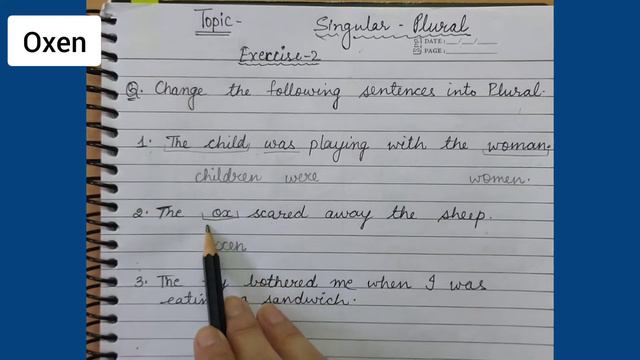 Oxen
Topic- Singular - Plural
DATE: __/__/__
PAGE:
Exercise-2
Q. Change the following sentences into Plural.
1. The child was playing with the woman.
children were women.
2. The ox scared away the sheep.
oxen
3. The bothered me when I was
eating a sandwich.